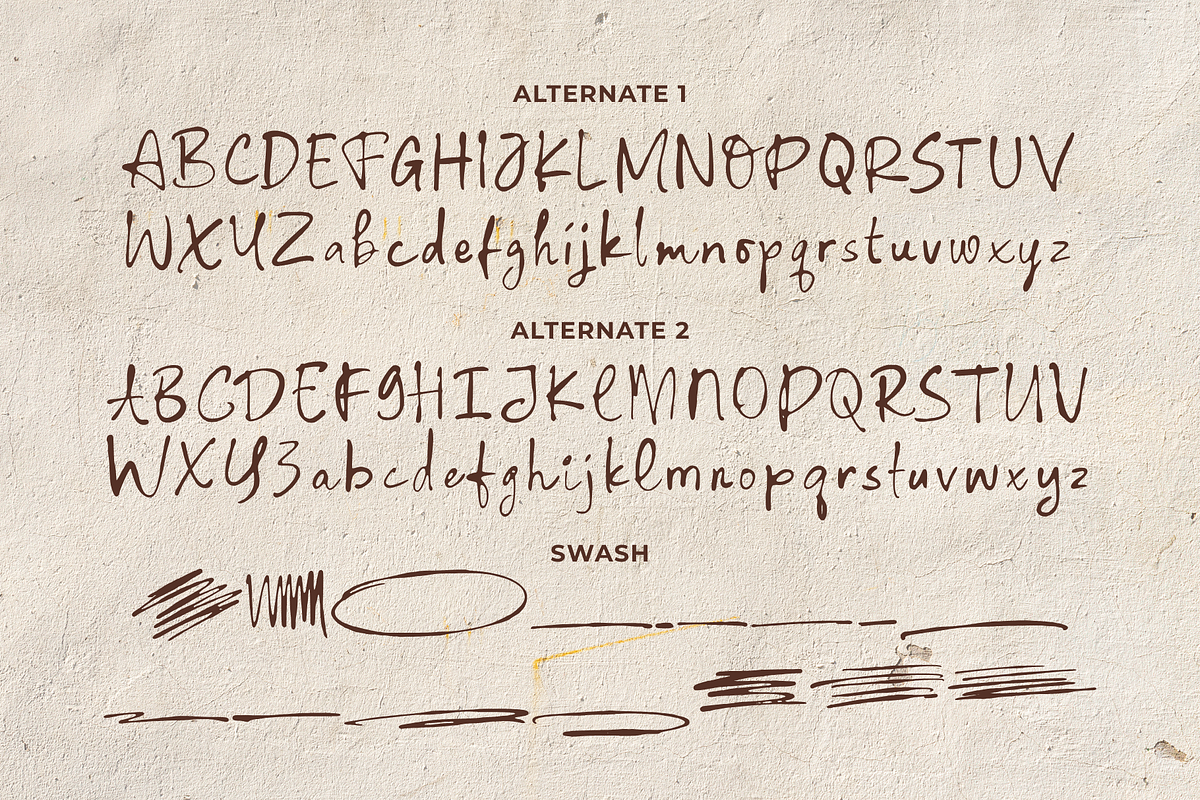 ALTERNATE 1
ABCDEFGHIJKLMNOPQRSTUV
WXYZabcdefghijklmnopqrstuvwxyz
ALTERNATE 2
ABCDEFGHIJKLMNOPQRSTUV
WXYZabcdefghijklmnopqrstuvwxyz
SWASH